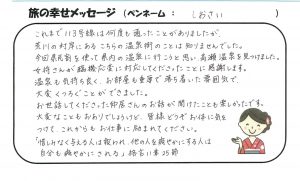 旅の幸せメッセージ (ペンネーム: しおさい)
これまで113号線は何度も通ったことがありましたが、
荒川の村岸にあるこちらの温泉街のことは知りませんでした。
今回県民割を使って県内の温泉に行こうと思い高瀬温泉を見つけました。
女将さんが臨機応変に対応してくださったことに感謝します。
温泉も気持ち良く、お部屋も素敵で落ち着いた雰囲気で、
大変くつろぐことができました。
お世話してくださった仲居さんのお話が聞けたことも楽しかったです。
大変なこともおありでしょうけど、皆様どうぞお体に気を
つけて、これからもお仕事に励まれてください。
「惜しみなく与える人は報われ 他の人を爽やかにする人は
自分も爽やかにされる」格言11章25節